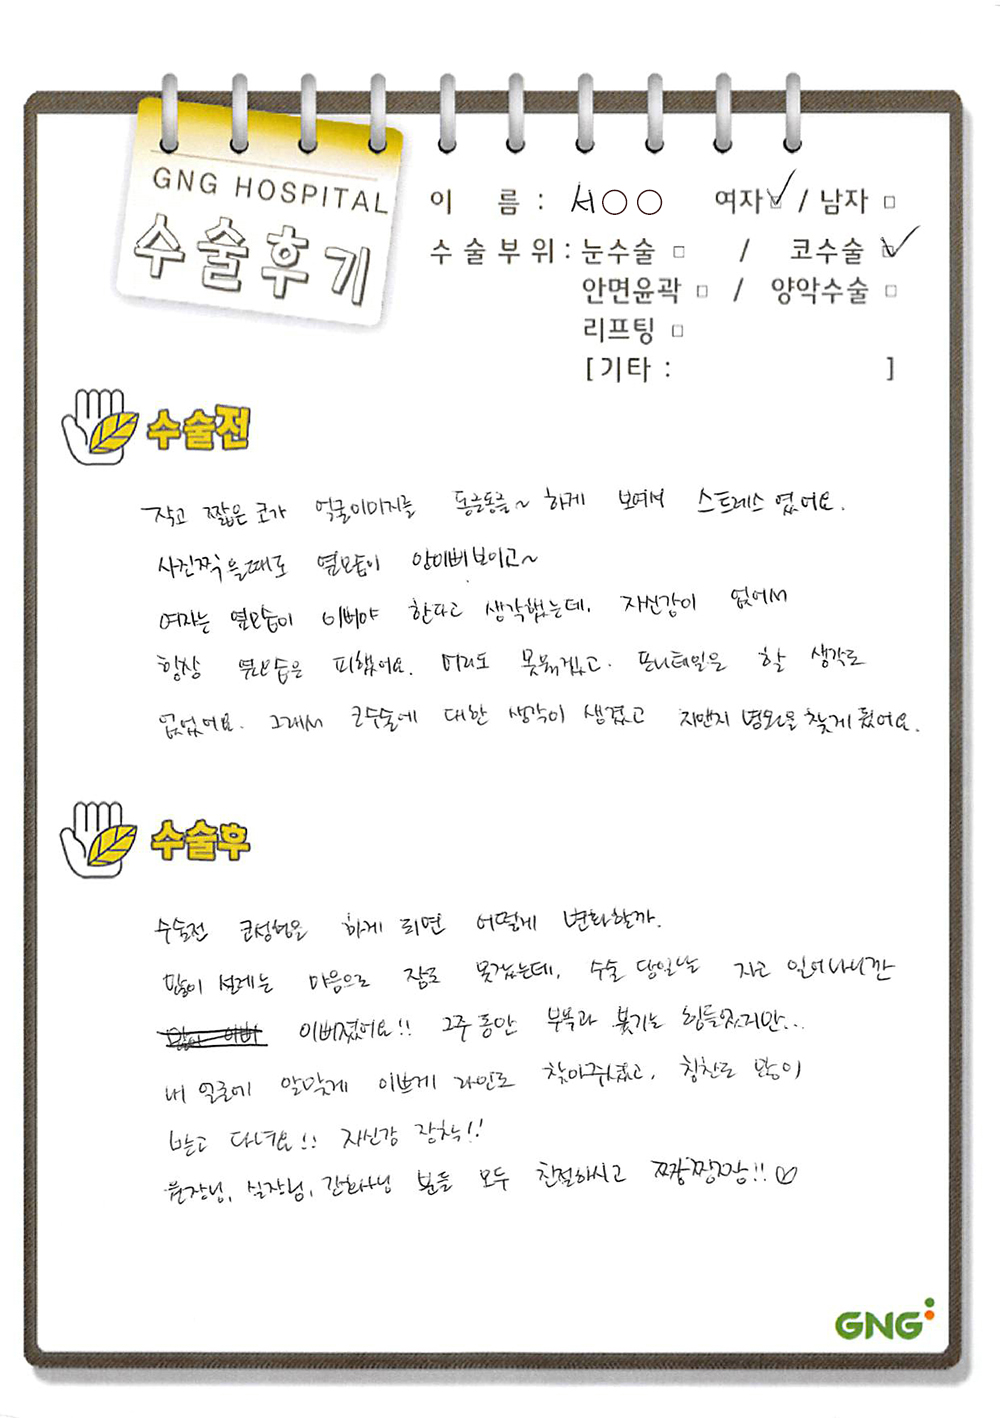 GNG HOSPITAL
수술후기
이 름 : 서○○ 여자☑ / 남자 □
수술부위 : 눈수술 □ / 코수술 ☑
안면윤곽 □ / 양악수술 □
리프팅 □
[기타 : ]
수술전
작고 짧은 코가 얼굴이미지를 동글동글~ 하게 보여서 스트레스 였어요.
사진찍을때도 옆모습이 안이뻐보이고~
여자는 옆모습이 이뻐야 한다고 생각했는데, 자신감이 없어서
항상 옆모습은 피했어요. 머리도 못묶겠고. 포니테일은 할 생각도
없었어요. 그래서 코수술에 대한 생각이 생겼고 지앤지 병원을 찾게 됬어요.
수술후
수술전 코성형을 하게 되면 어떻게 변화할까.
많이 설레는 마음으로 잠도 못잤는데, 수술 당일날 자고 일어나니깐
이뻐졌어요!! 2주 동안 부목과 붓기는 힘들었지만..
내 얼굴에 알맞게 이쁘게 라인도 찾아주셨고, 칭찬도 많이
받고 다녀요!! 자신감 장착!!
원장님, 실장님, 간호사님 분들 모두 친절하시고 짱짱짱!!♡
GNG